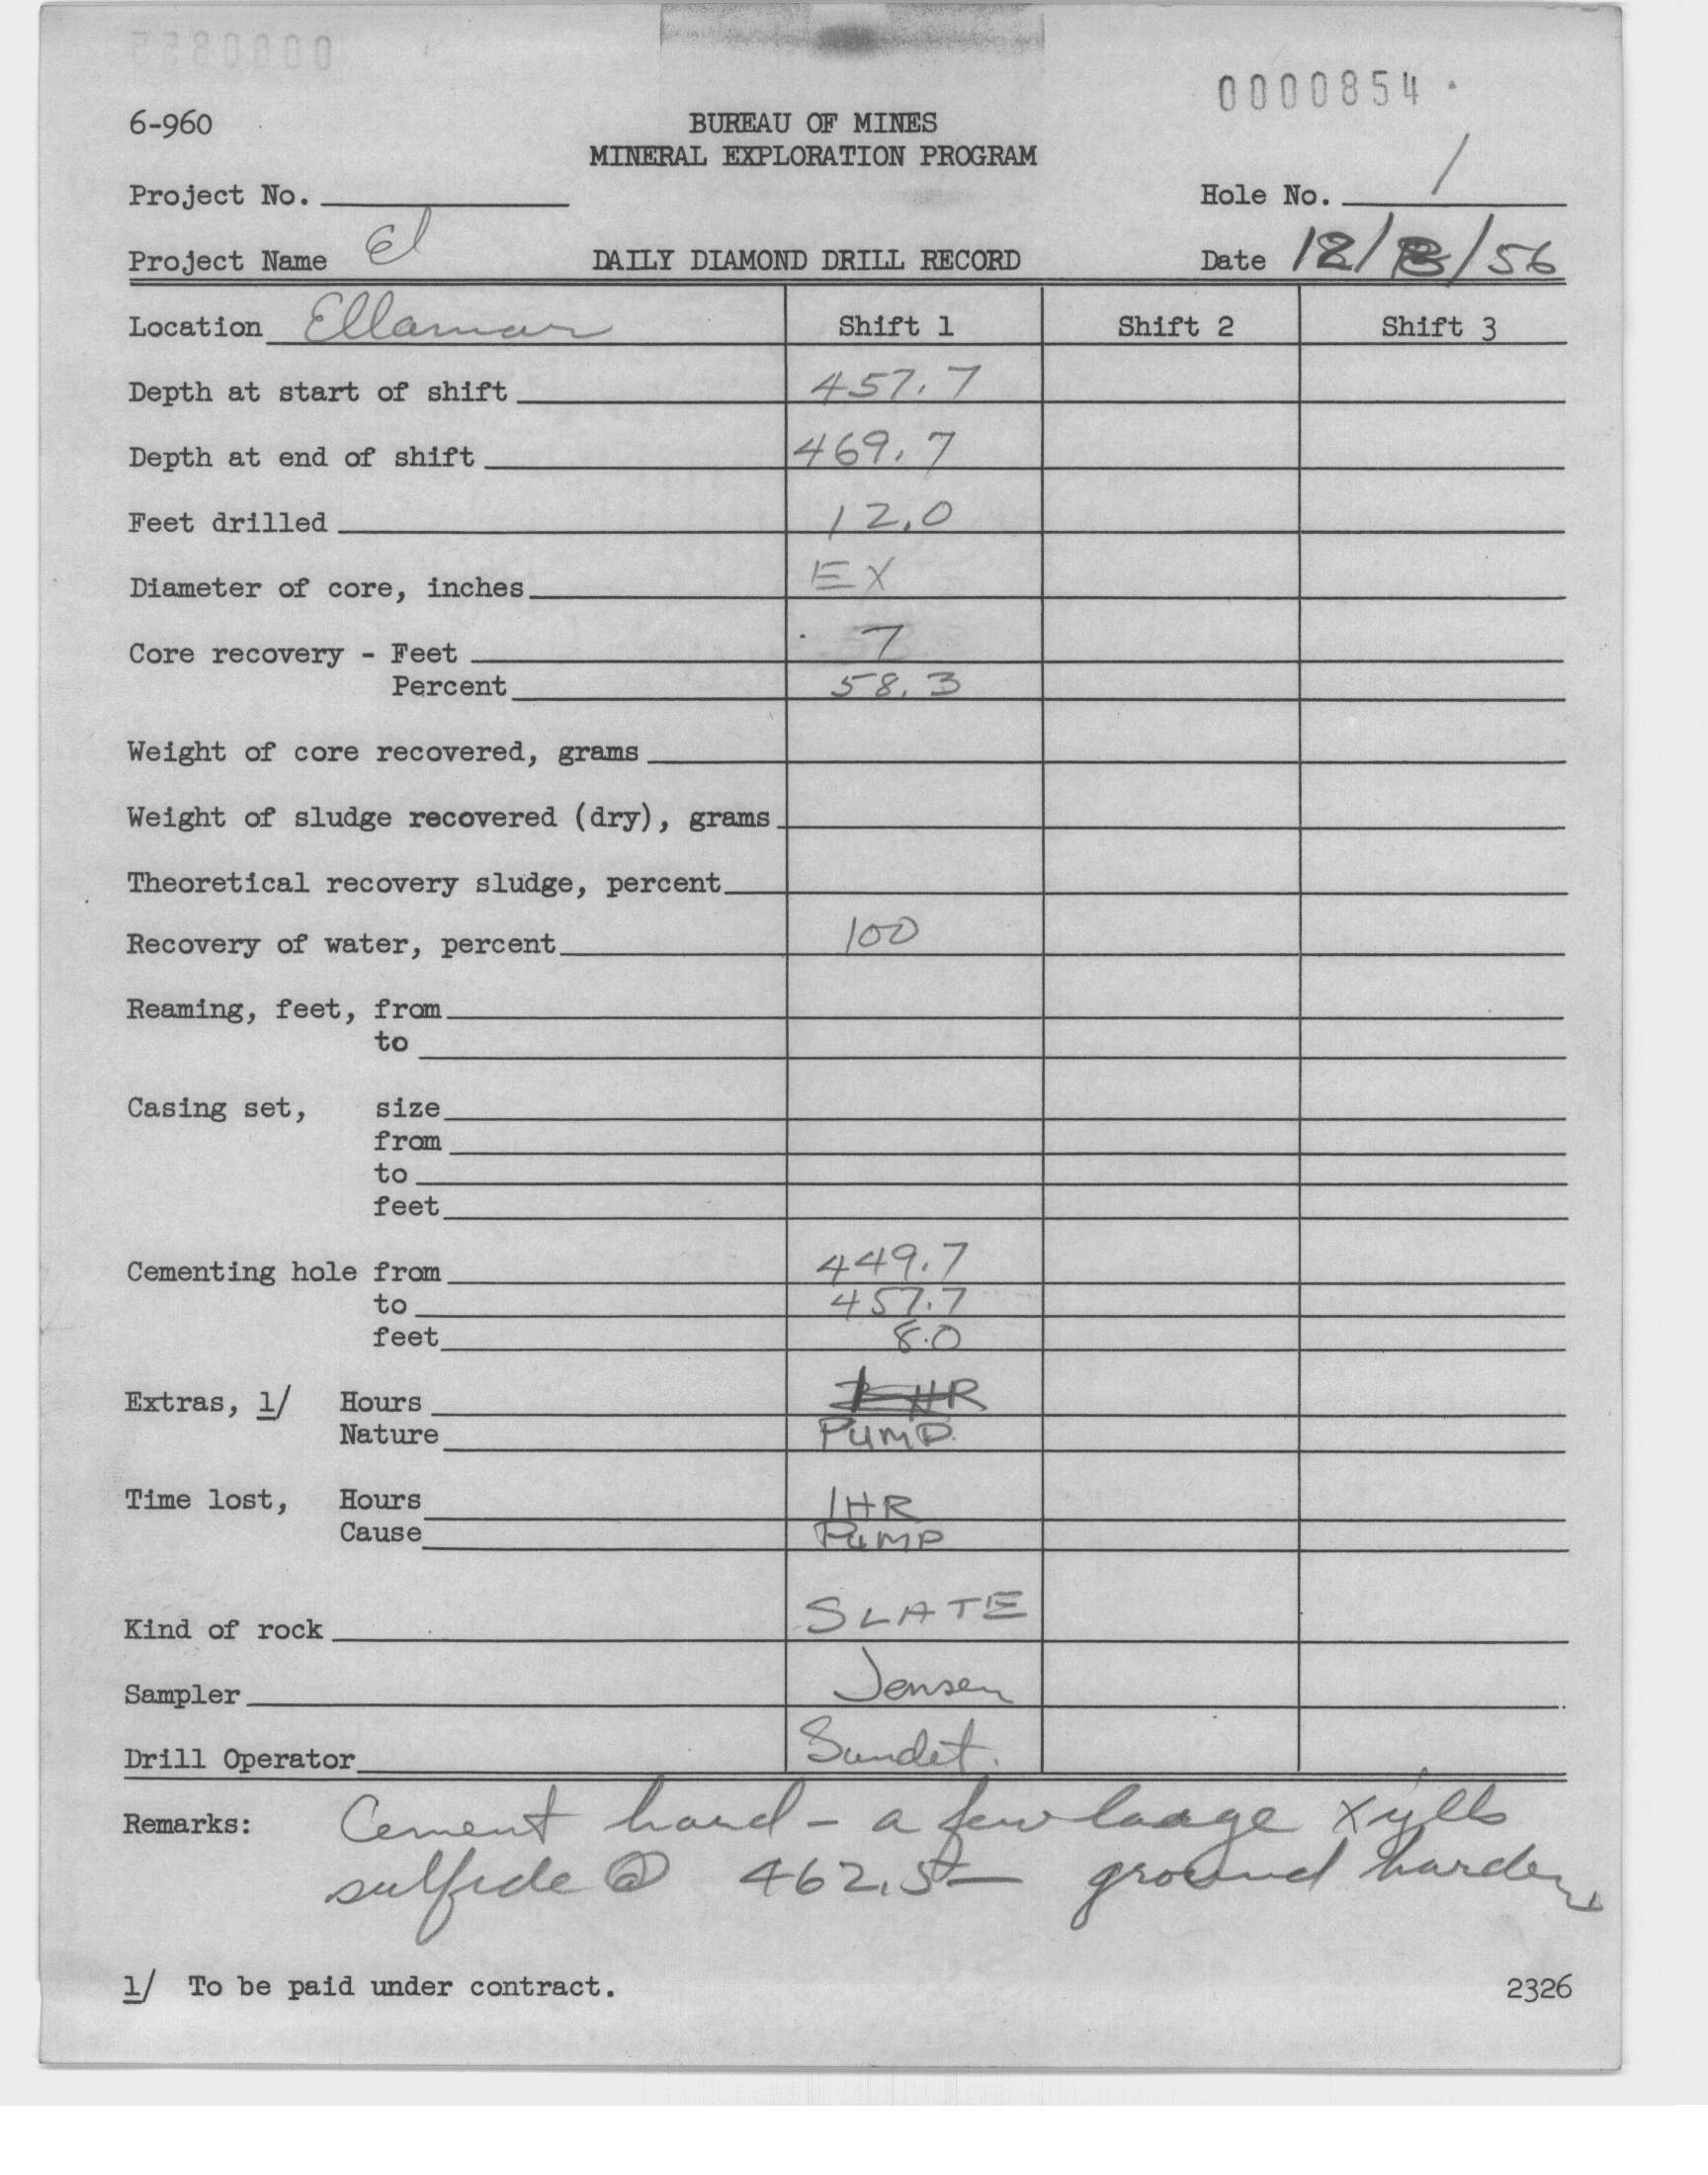 0000854
6-960
BUREAU OF MINES
MINERAL EXPLORATION PROGRAM
Project No. Hole No. 1
Project Name El DAILY DIAMOND DRILL RECORD Date 12/ /56
Location Ellamar Shift 1 Shift 2 Shift 3
Depth at start of shift 457.7
Depth at end of shift 469.7
Feet drilled 12.0
Diameter of core, inches EX
Core recovery - Feet 7
Percent 58.3
Weight of core recovered, grams
Weight of sludge recovered (dry), grams
Theoretical recovery sludge, percent
Recovery of water, percent 100
Reaming, feet, from
to
Casing set, size
from
to
feet
Cementing hole from 449.7
to 457.7
feet 8.0
Extras, 1/ Hours HR
Nature PUMP
Time lost, Hours 1HR
Cause PUMP
Kind of rock SLATE
Sampler Jensen
Drill Operator Sundet.
Remarks: Cement hard - a few large
sulfide @ 462.5 - ground harder
1/ To be paid under contract. 2326